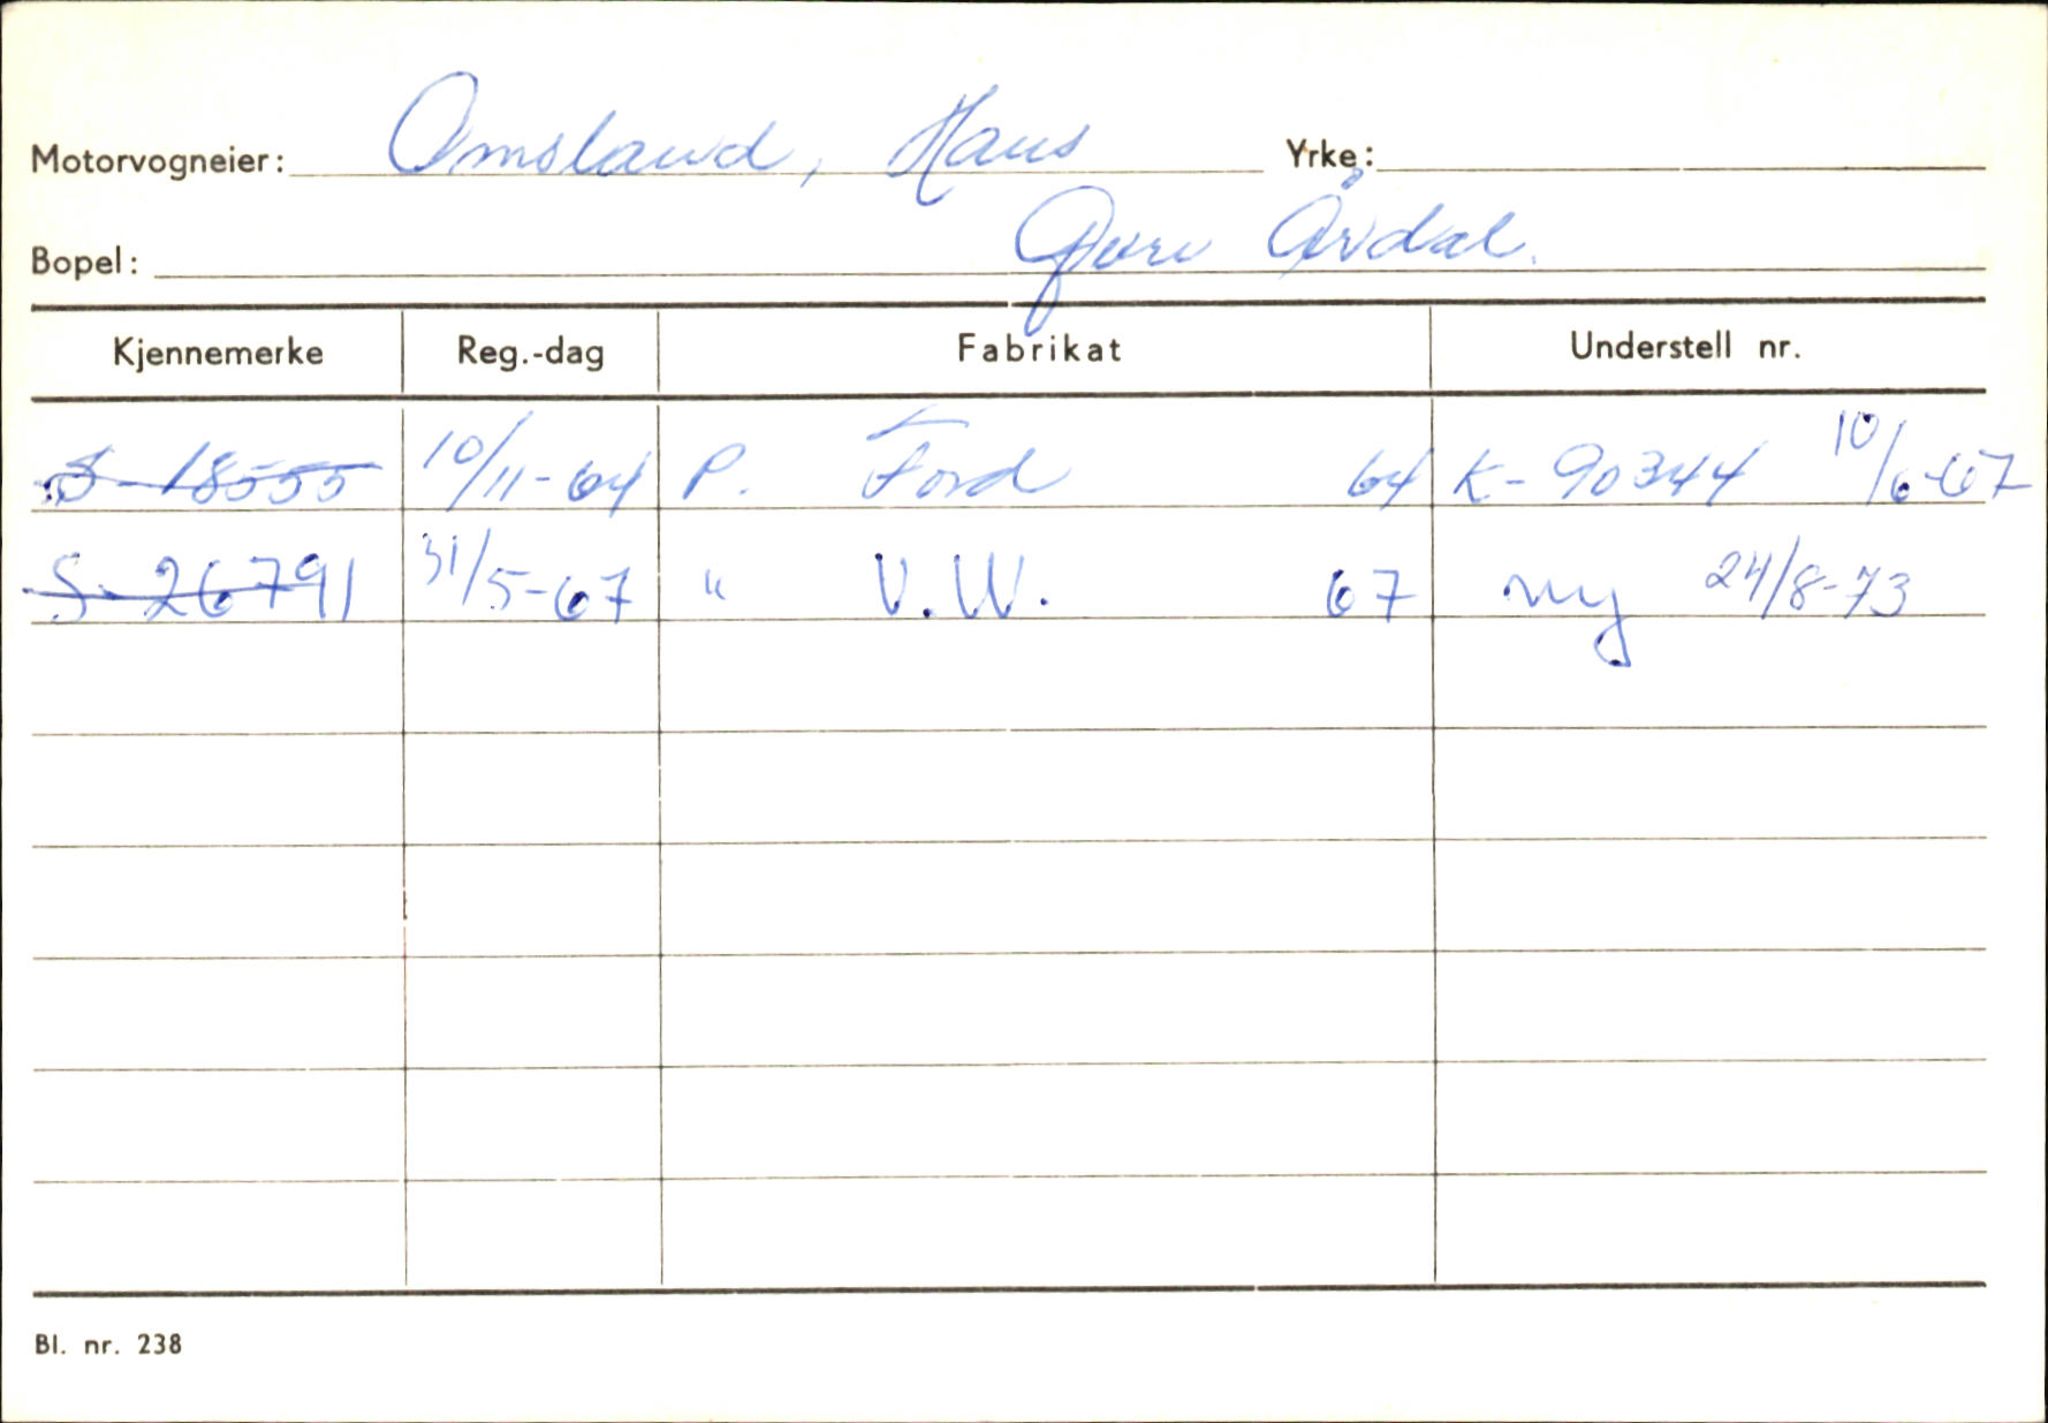 Motorvogneier: Omsland, Hans Yrke:
Bopel: Øvre Årdal.
Kjennemerke Reg.-dag Fabrikat Understell nr.
S-18555 10/11-64 P. Ford 64 K-90344 10/6-67
S-26791 31/5-67 " V.W. 67 ny 24/8-73
Bl. nr. 238